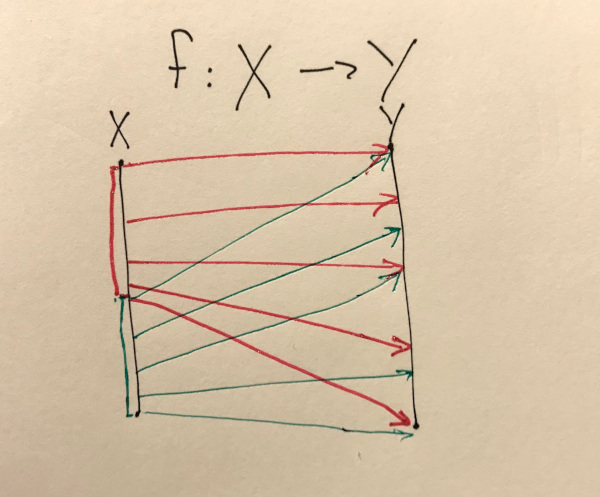 f : X → Y
X
Y